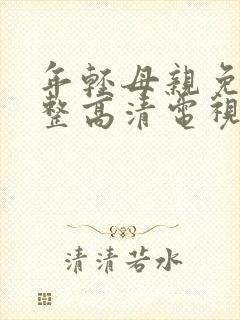 年輕母親免
整高清電視
清清若水